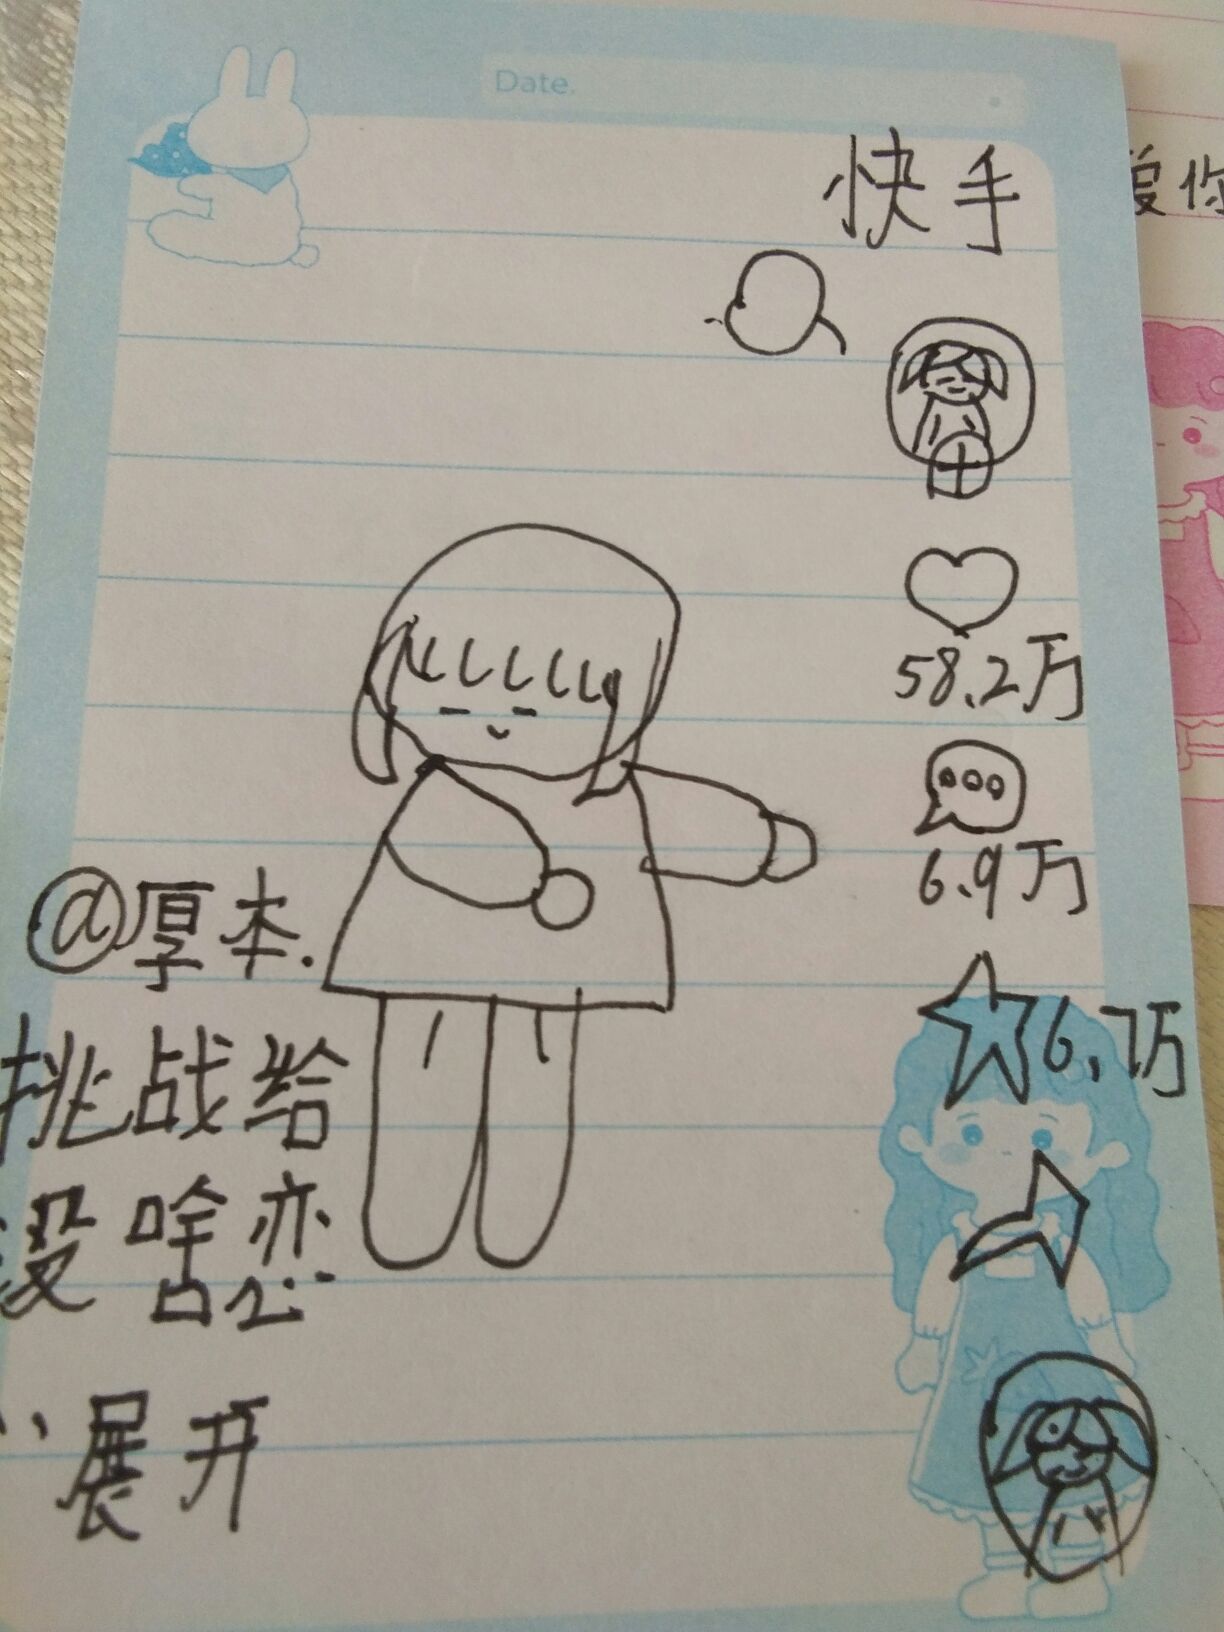 Date.
快手
爱你
58.2万
6.9万
@厚本.
6.7万
挑战给
没啥恋
展开